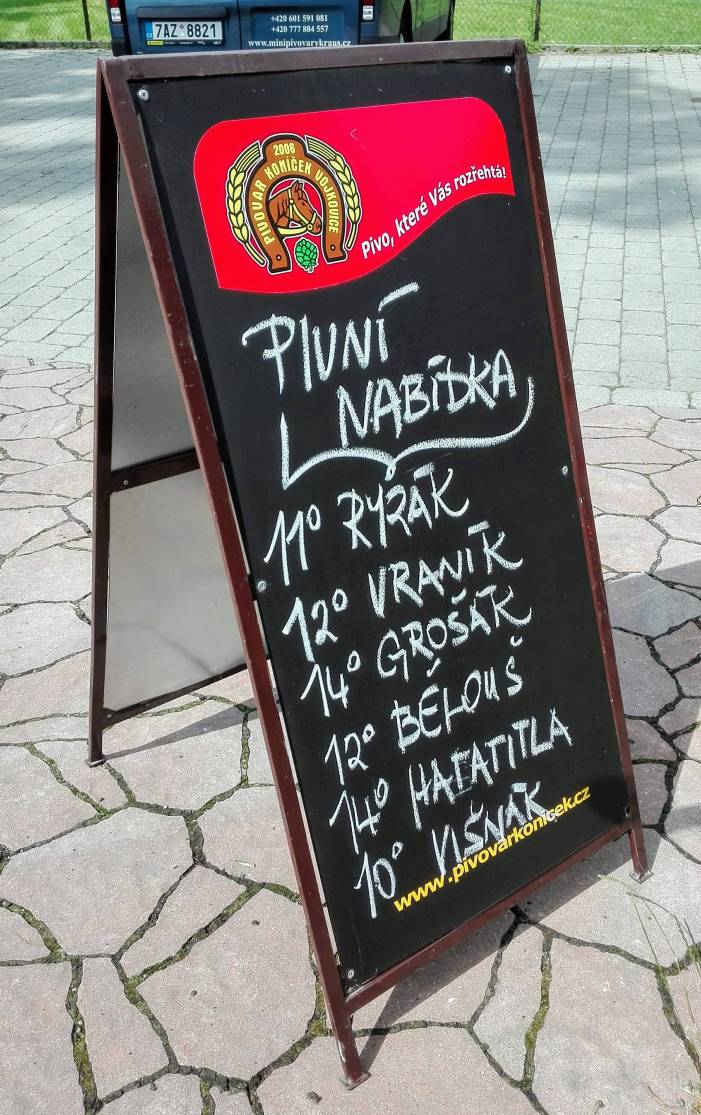 7AZ 8821
+420 601 591 081
+420 777 884 557
www.minipivovarykraus.cz
2006
PIVOVAR KONÍČEK VOJKOVICE
Pivo, které Vás rozřehtá!
PIVNÍ
NABÍDKA
11° RYZÁK
12° VRANÍK
14° GROŠÁK
12° BĚLOUŠ
14° HAFATITLA
10° VIŠŇÁK
www.pivovarkonicek.cz